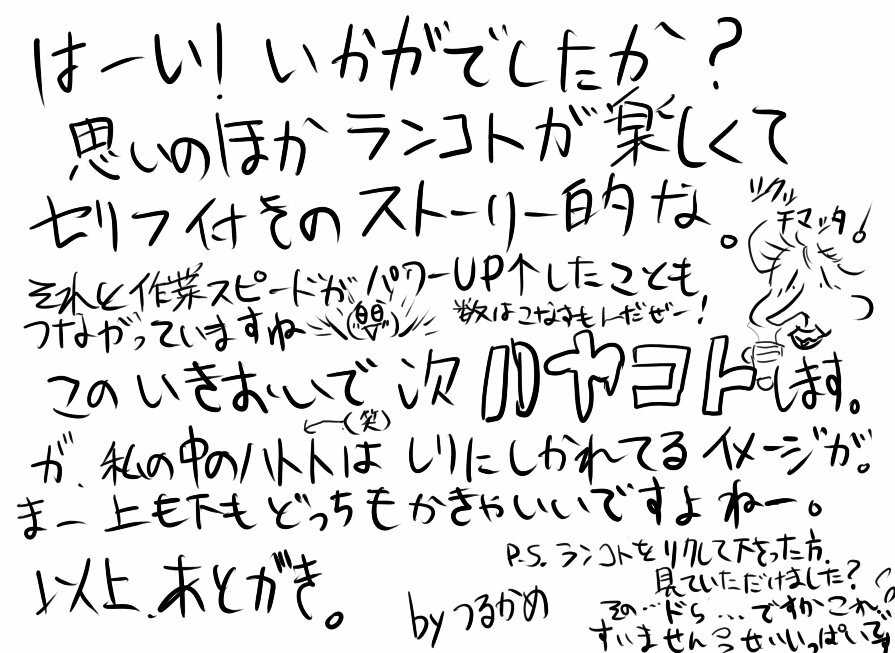 はーい!いかがでしたか?
思いのほかランコトが楽しくて
セリフ付きのストーリー的な。
ツクッ
チマッタ!
それと作業スピードがパワーUP↑したことも
つながっていますね
数はこなすもんだぜー!
このいきおいで次ルヤコトします。
←(笑)
が、私の中のハトトはしりにしかれてるイメージが。
まー上も下もどっちもかきゃいいですよねー。
以上、あとがき。
by つるかめ
P.S. ランコトをリクして下さった方、
見ていただけました?
その…ドS…ですかこれ…
すいません せいいっぱいです